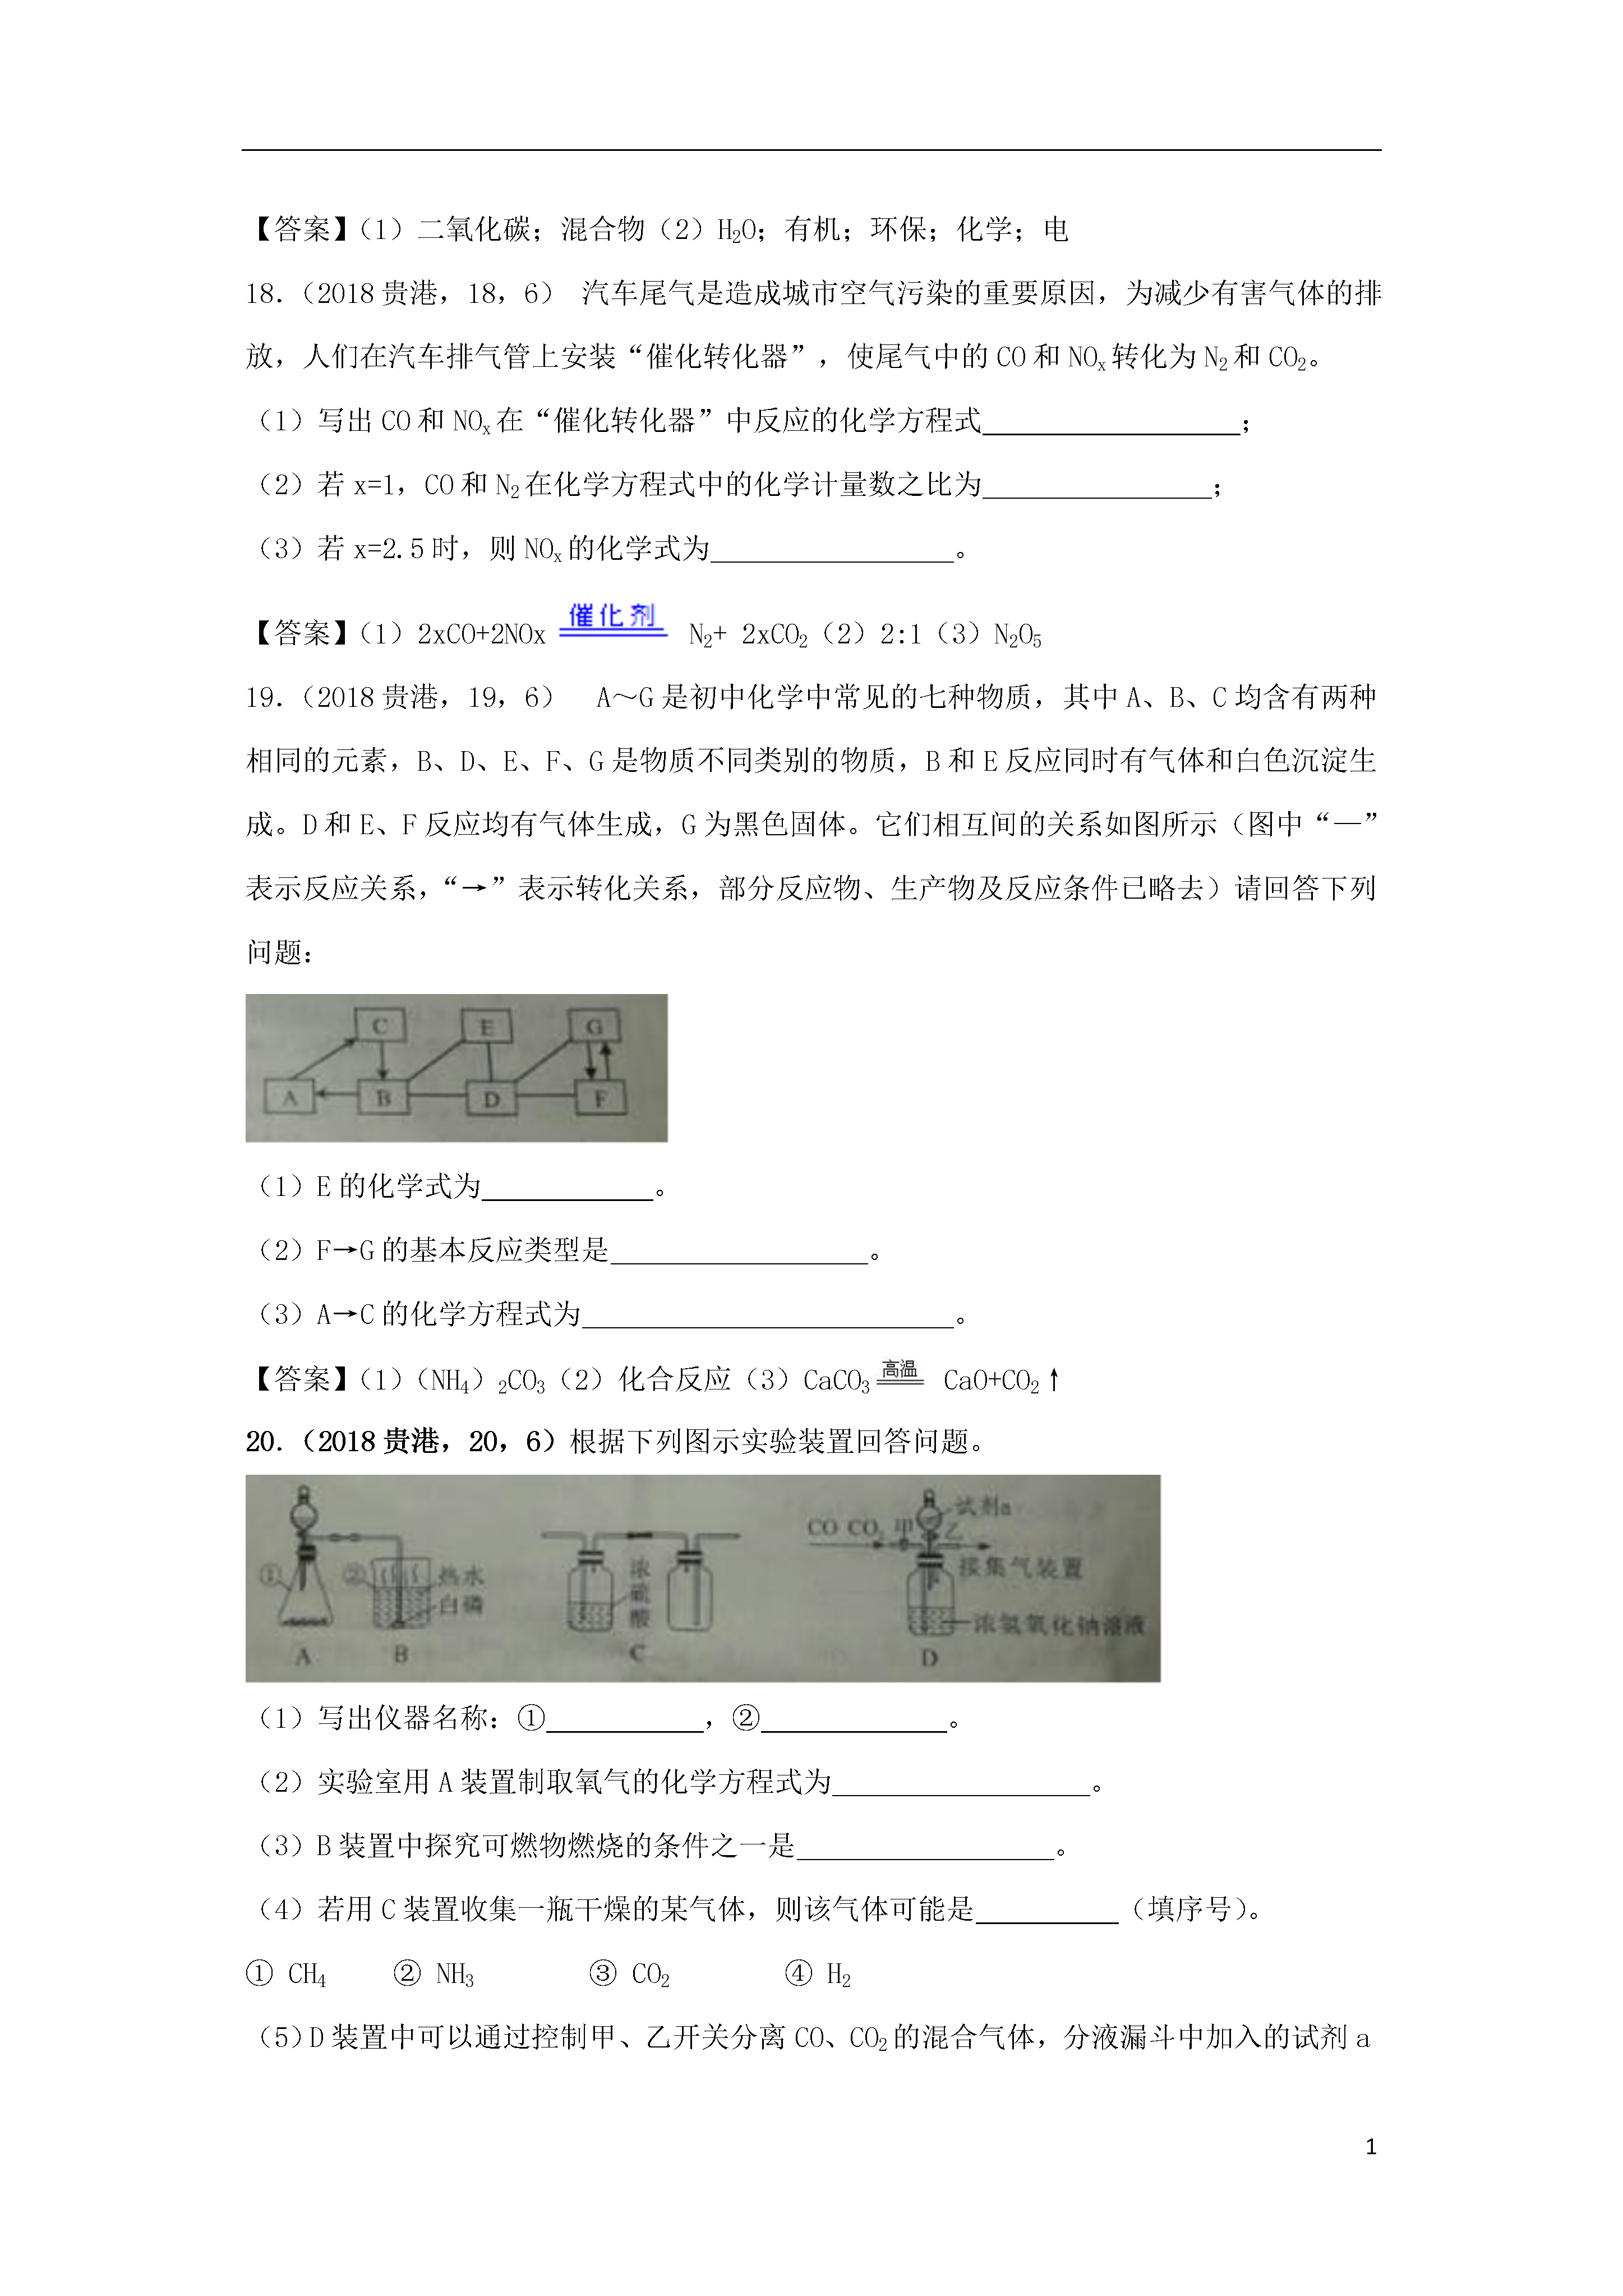 【答案】（1）二氧化碳；混合物（2）H₂O；有机；环保；化学；电
18.（2018 贵港，18，6） 汽车尾气是造成城市空气污染的重要原因，为减少有害气体的排
放，人们在汽车排气管上安装“催化转化器”，使尾气中的 CO 和 NOₓ 转化为 N₂ 和 CO₂。
（1）写出 CO 和 NOₓ 在“催化转化器”中反应的化学方程式__________________；
（2）若 x=1，CO 和 N₂ 在化学方程式中的化学计量数之比为________________；
（3）若 x=2.5 时，则 NOₓ 的化学式为_________________。
【答案】（1）2xCO+2NOx 催化剂 N₂+ 2xCO₂（2）2:1（3）N₂O₅
19.（2018 贵港，19，6） A～G 是初中化学中常见的七种物质，其中 A、B、C 均含有两种
相同的元素，B、D、E、F、G 是物质不同类别的物质，B 和 E 反应同时有气体和白色沉淀生
成。D 和 E、F 反应均有气体生成，G 为黑色固体。它们相互间的关系如图所示（图中“—”
表示反应关系，“→”表示转化关系，部分反应物、生产物及反应条件已略去）请回答下列
问题：
C E G
A B D F
（1）E 的化学式为____________。
（2）F→G 的基本反应类型是__________________。
（3）A→C 的化学方程式为__________________________。
【答案】（1）（NH₄）₂CO₃（2）化合反应（3）CaCO₃ 高温 CaO+CO₂↑
20.（2018 贵港，20，6）根据下列图示实验装置回答问题。
① ② 热水
白磷
A B
浓硫酸
C
CO CO₂ 甲 乙 试剂a
接集气装置
浓氢氧化钠溶液
D
（1）写出仪器名称：①___________，②_____________。
（2）实验室用 A 装置制取氧气的化学方程式为__________________。
（3）B 装置中探究可燃物燃烧的条件之一是__________________。
（4）若用 C 装置收集一瓶干燥的某气体，则该气体可能是__________（填序号）。
① CH₄ ② NH₃ ③ CO₂ ④ H₂
（5）D 装置中可以通过控制甲、乙开关分离 CO、CO₂ 的混合气体，分液漏斗中加入的试剂 a
1